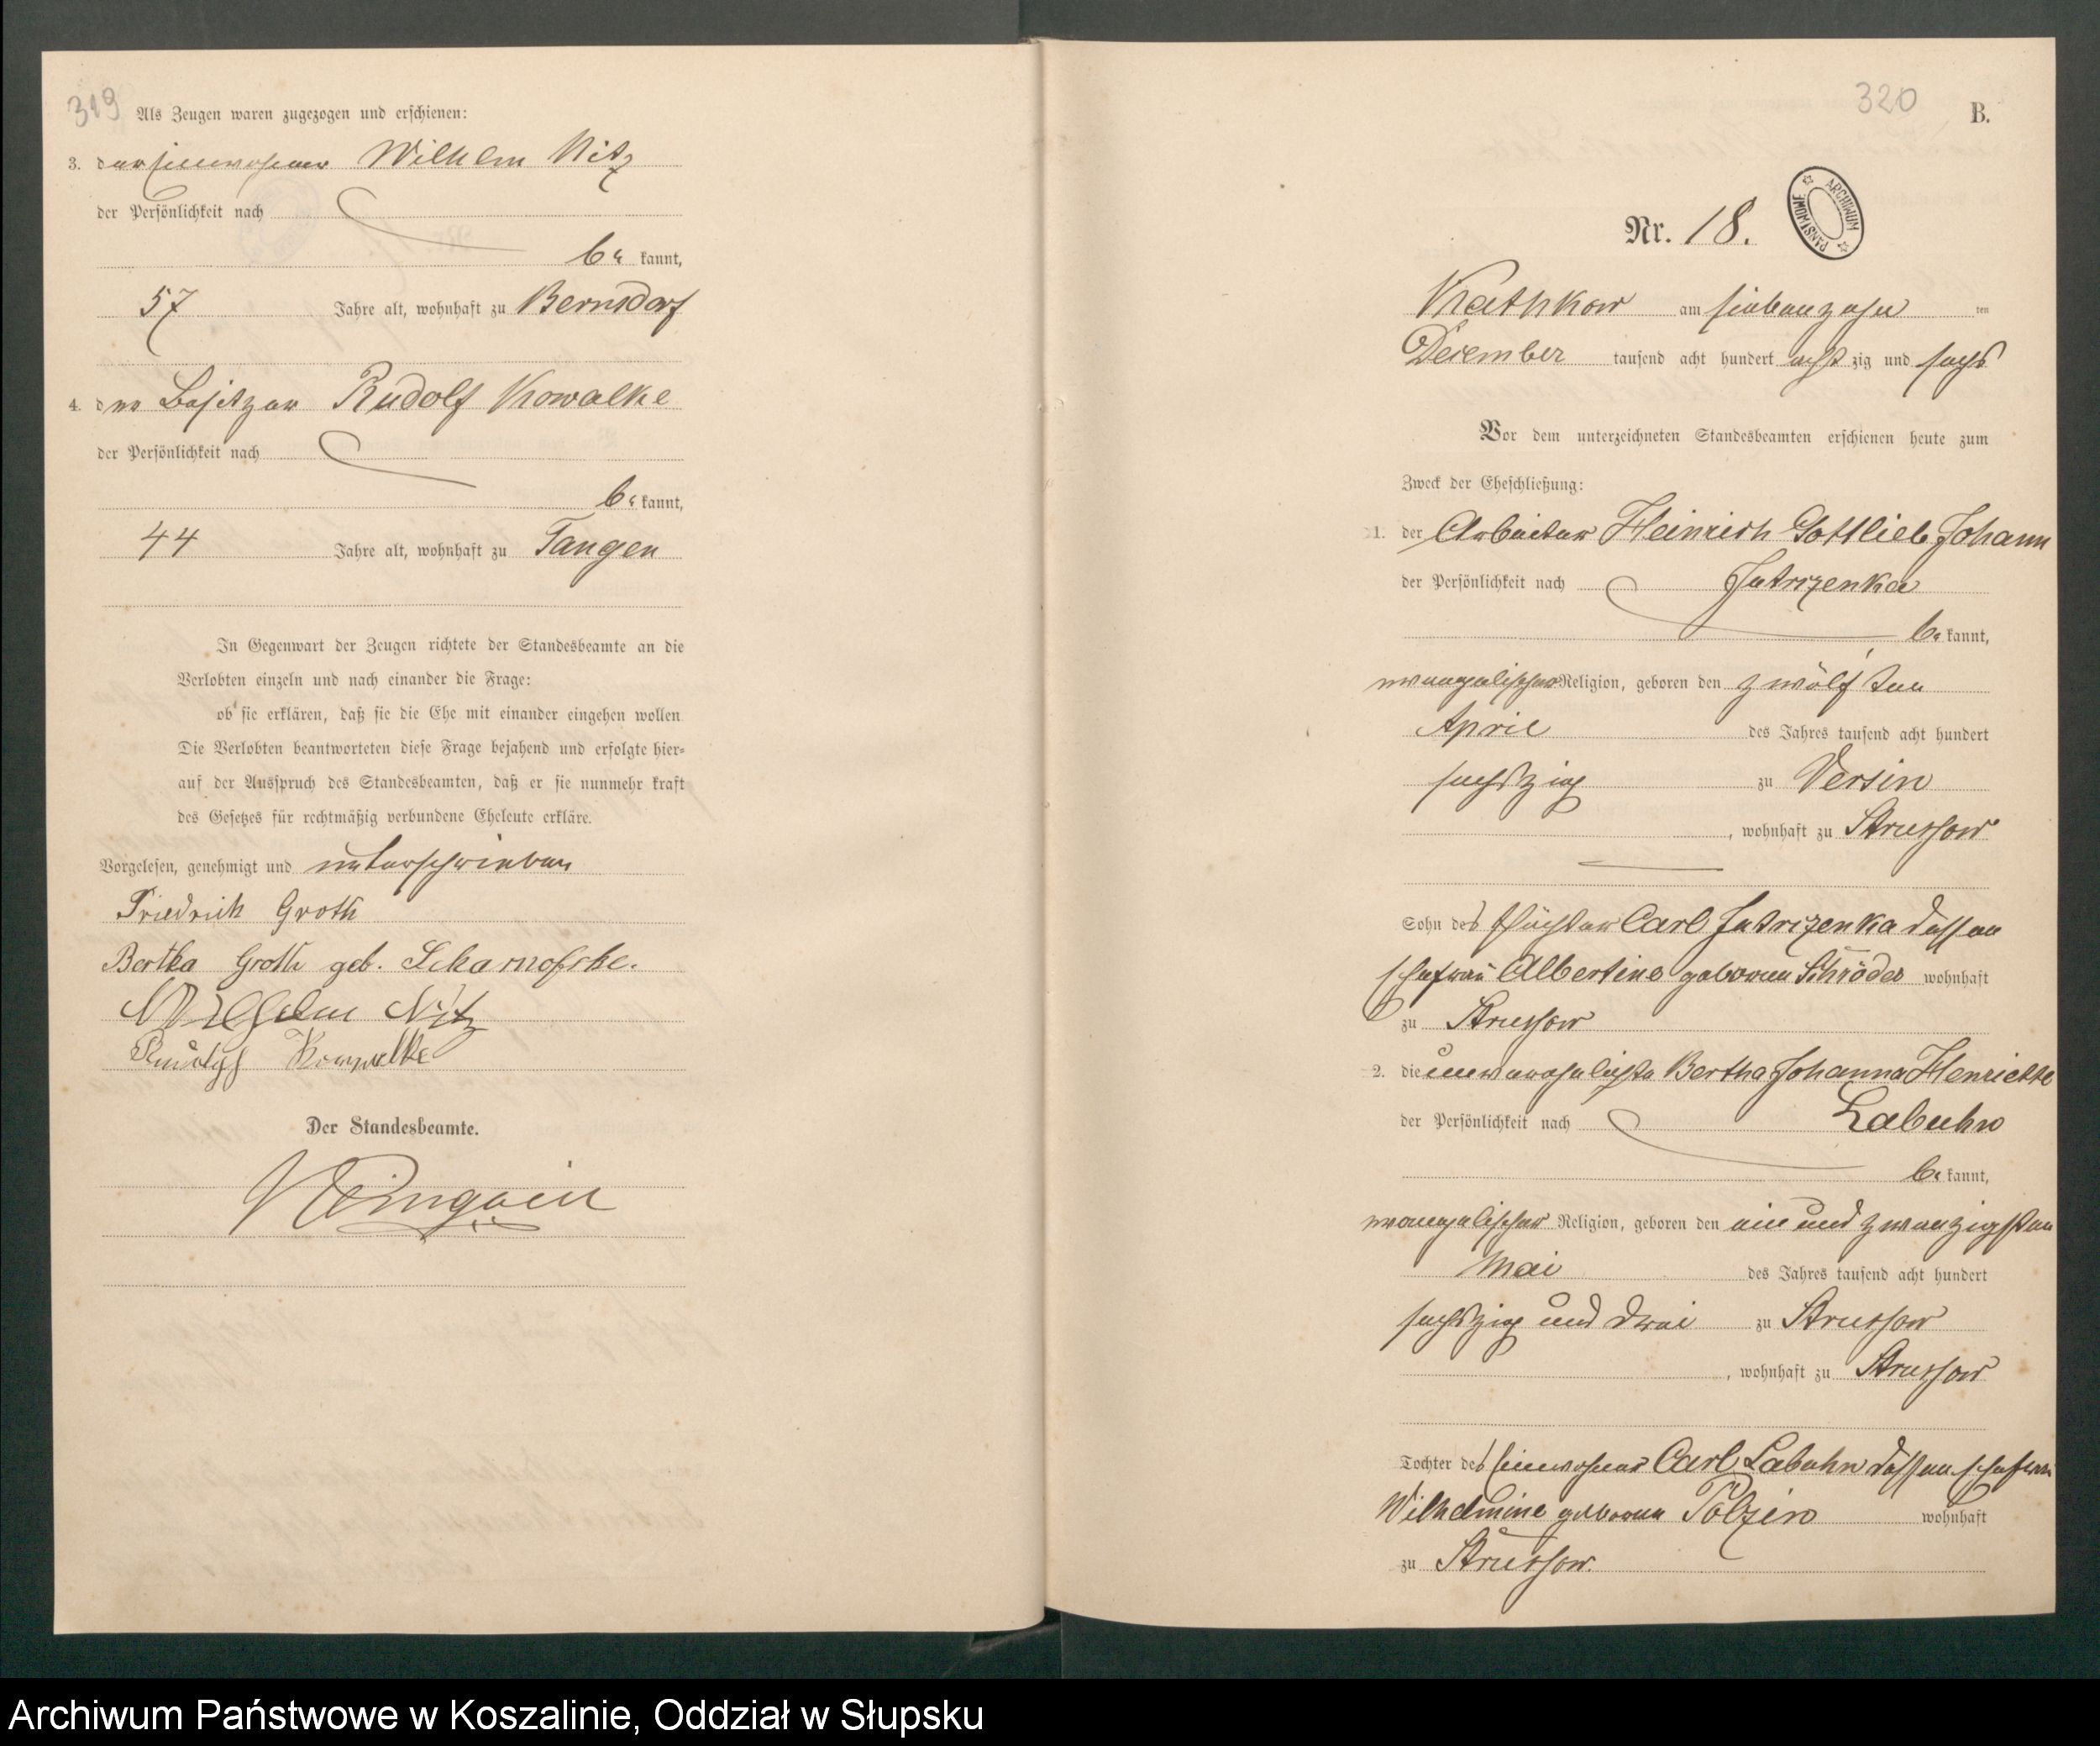 319
Als Zeugen waren zugezogen und erschienen:
3. der Einwohner Wilhelm Nitz
der Persönlichkeit nach
be kannt,
57 Jahre alt, wohnhaft zu Bernsdorf
4. der Besitzer Rudolf Kowalke
der Persönlichkeit nach
be kannt,
44 Jahre alt, wohnhaft zu Tangen
In Gegenwart der Zeugen richtete der Standesbeamte an die
Verlobten einzeln und nach einander die Frage:
ob sie erklären, daß sie die Ehe mit einander eingehen wollen
Die Verlobten beantworteten diese Frage bejahend und erfolgte hier-
auf der Ausspruch des Standesbeamten, daß er sie nunmehr kraft
des Gesetzes für rechtmäßig verbundene Eheleute erkläre.
Vorgelesen, genehmigt und unterschrieben
Friedrich Groth
Bertha Groth geb.
Wilhelm Nitz
Rudolf Kowalke
Der Standesbeamte.
320
B.
ARCHIWUM PAŃSTWOWE
Nr. 18.
Kathkow am siebenzehn ten
December tausend acht hundert acht zig und sechs
Vor dem unterzeichneten Standesbeamten erschienen heute zum
Zweck der Eheschließung:
1. der Arbeiter Heinrich Gottlieb Johann
der Persönlichkeit nach Jutrzenka
be kannt,
evangelischer Religion, geboren den zwölften
April des Jahres tausend acht hundert
sechszig zu Versin
, wohnhaft zu Strussow
Sohn des Pächter Carl Jutrzenka dessen
Ehefrau Albertine geborene Schröder wohnhaft
zu Strussow
2. die unverehelichte Bertha Johanna Henriette
der Persönlichkeit nach Labuhn
be kannt,
evangelischer Religion, geboren den ein und zwanzigsten
Mai des Jahres tausend acht hundert
sechszig und drei zu Strussow
, wohnhaft zu Strussow
Tochter des Einwohner Carl Labuhn dessen Ehefrau
Wilhelmine geborene Polzin wohnhaft
zu Strussow.
Archiwum Państwowe w Koszalinie, Oddział w Słupsku